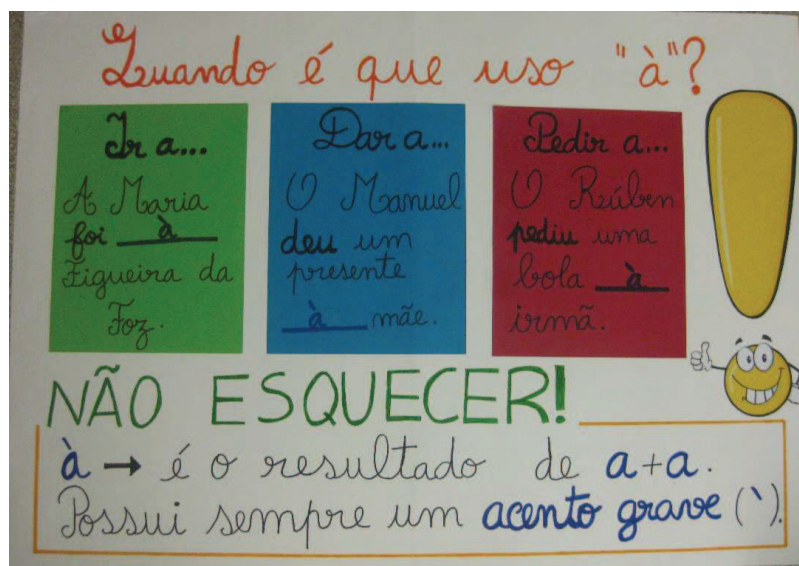 Quando é que uso "à"?
Ir a...
A Maria
foi à
Figueira da
Foz.
Dar a...
O Manuel
deu um
presente
à mãe.
Pedir a...
O Rúben
pediu uma
bola à
irmã.
NÃO ESQUECER!
à → é o resultado de a+a.
Possui sempre um acento grave (`).